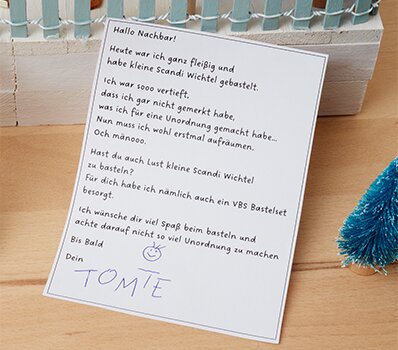 Hallo Nachbar!
Heute war ich ganz fleißig und
habe kleine Scandi Wichtel gebastelt.
Ich war sooo vertieft.
dass ich gar nicht gemerkt habe,
was ich für eine Unordnung gemacht habe...
Nun muss ich wohl erstmal aufräumen.
Och mänooo.
Hast du auch Lust kleine Scandi Wichtel
zu basteln?
Für dich habe ich nämlich auch ein VBS Bastelset
besorgt.
Ich wünsche dir viel Spaß beim basteln und
achte darauf nicht so viel Unordnung zu machen
Bis Bald
Dein
TOMTE